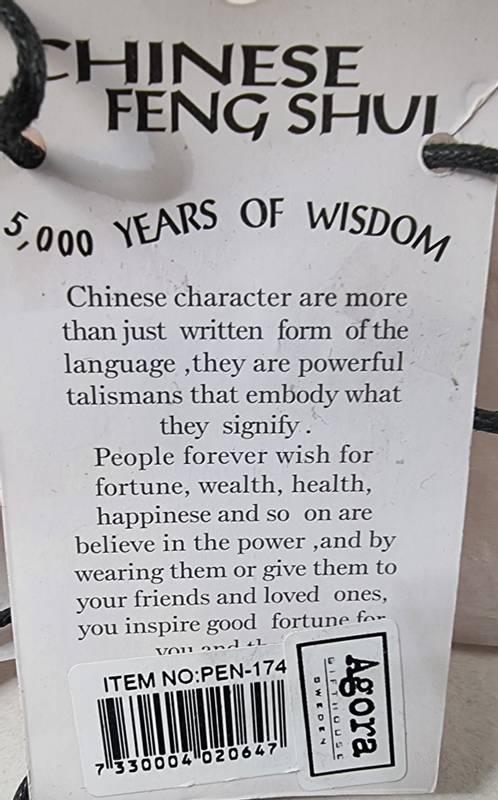 CHINESE
FENG SHUI
5,000 YEARS OF WISDOM
Chinese character are more
than just written form of the
language ,they are powerful
talismans that embody what
they signify .
People forever wish for
fortune, wealth, health,
happinese and so on are
believe in the power ,and by
wearing them or give them to
your friends and loved ones,
you inspire good fortune for
you and
ITEM NO:PEN-174
7 330004 020647
Agora
GIFTHOUSE
SWEDEN